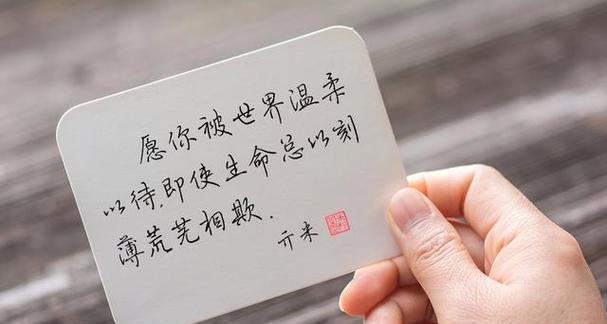 愿你被世界温柔
以待,即使生命总以刻
薄荒芜相欺.
亓米